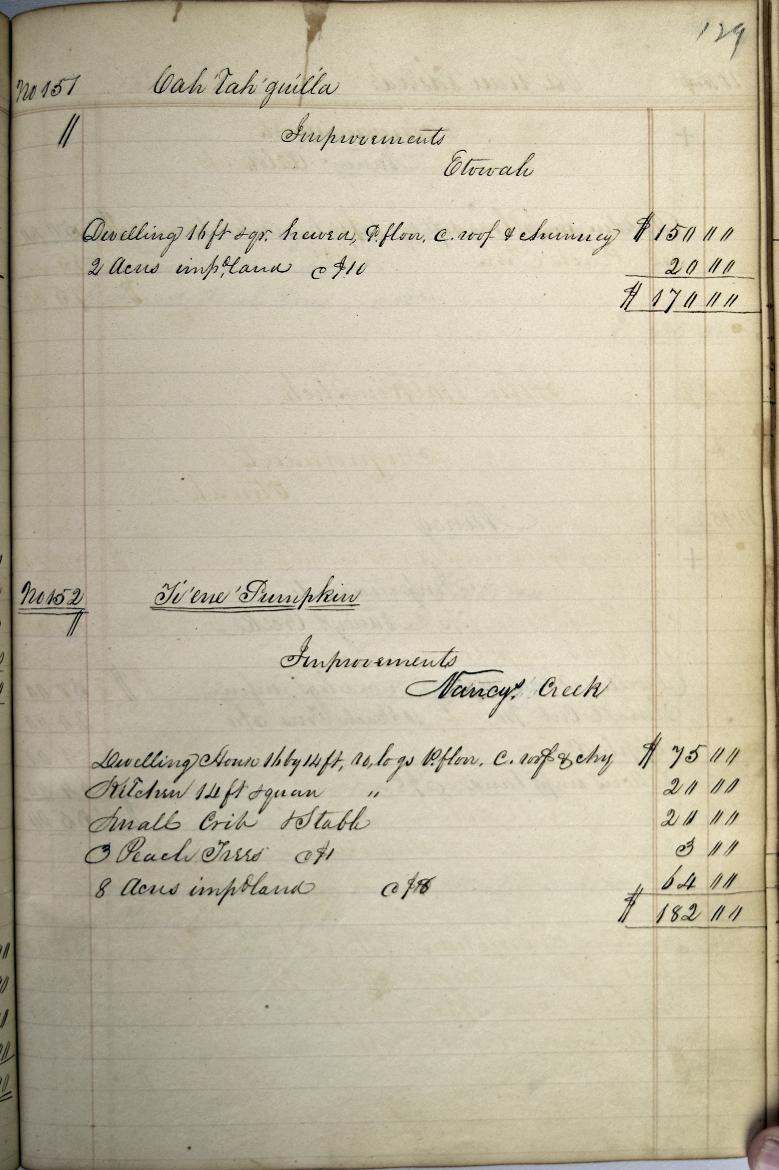 129
No 151 Cah Tah'quilla
"
Improvements
Etowah
Dwelling 16 ft sqr. hewed, P. floor, C. roof & chimney $ 150 "
2 Acres impd. land @ $10 20 "
$ 170 "
No 152 Ti'ene' Pumpkin
"
Improvements
Nancys. Creek
Dwelling House 16 by 14 ft, ro, logs P. floor. C. roof & chy $ 75 "
Kitchen 14 ft square " 20 "
Small Crib & Stable 20 "
3 Peach Trees @ $1 3 "
8 Acres impd land @ $8 64 "
$ 182 "